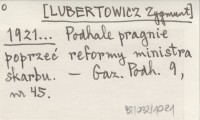 [LUBERTOWICZ Zygmunt]
1921... Podhale pragnie
poprzeć reformy ministra
skarbu. — Gaz. Podh. 9,
nr 45.